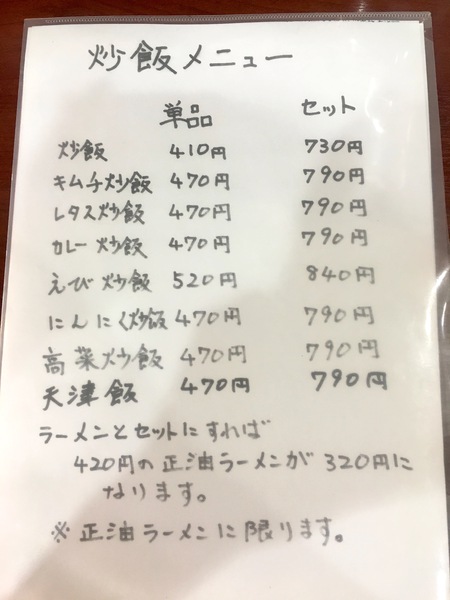 炒飯メニュー
単品 セット
炒飯 410円 730円
キムチ炒飯 470円 790円
レタス炒飯 470円 790円
カレー炒飯 470円 790円
えび炒飯 520円 840円
にんにく炒飯 470円 790円
高菜炒飯 470円 790円
天津飯 470円 790円
ラーメンとセットにすれば
420円の正油ラーメンが320円に
なります。
※正油ラーメンに限ります。